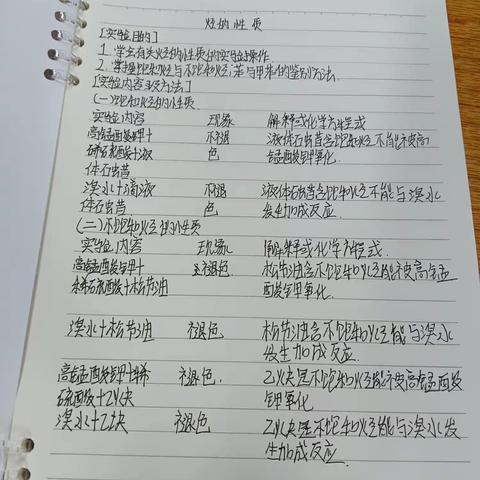 烃的性质
[实验目的]
1. 学会有关烃的性质的实验操作.
2. 掌握饱和烃与不饱和烃,苯与甲苯的鉴别方法.
[实验内容及方法]
(一)饱和烃的性质
实验内容 现象 解释或化学方程式
高锰酸钾十 不褪 液体石蜡含饱和烃不能被高
稀硫酸十液 色 锰酸钾氧化.
体石蜡
溴水十液 不褪 液体石蜡含饱和烃不能与溴水
体石蜡 色 发生加成反应.
(二)不饱和烃的性质
实验内容 现象 解释或化学方程式.
高锰酸钾十 褪色 松节油含不饱和烃能被高锰
稀硫酸十松节油 酸钾氧化.
溴水十松节油 褪色 松节油含不饱和烃能与溴水
发生加成反应.
高锰酸钾十稀 褪色. 乙炔是不饱和烃能被高锰酸
硫酸十乙炔 钾氧化
溴水十乙炔 褪色 乙炔是不饱和烃能与溴水发
生加成反应.